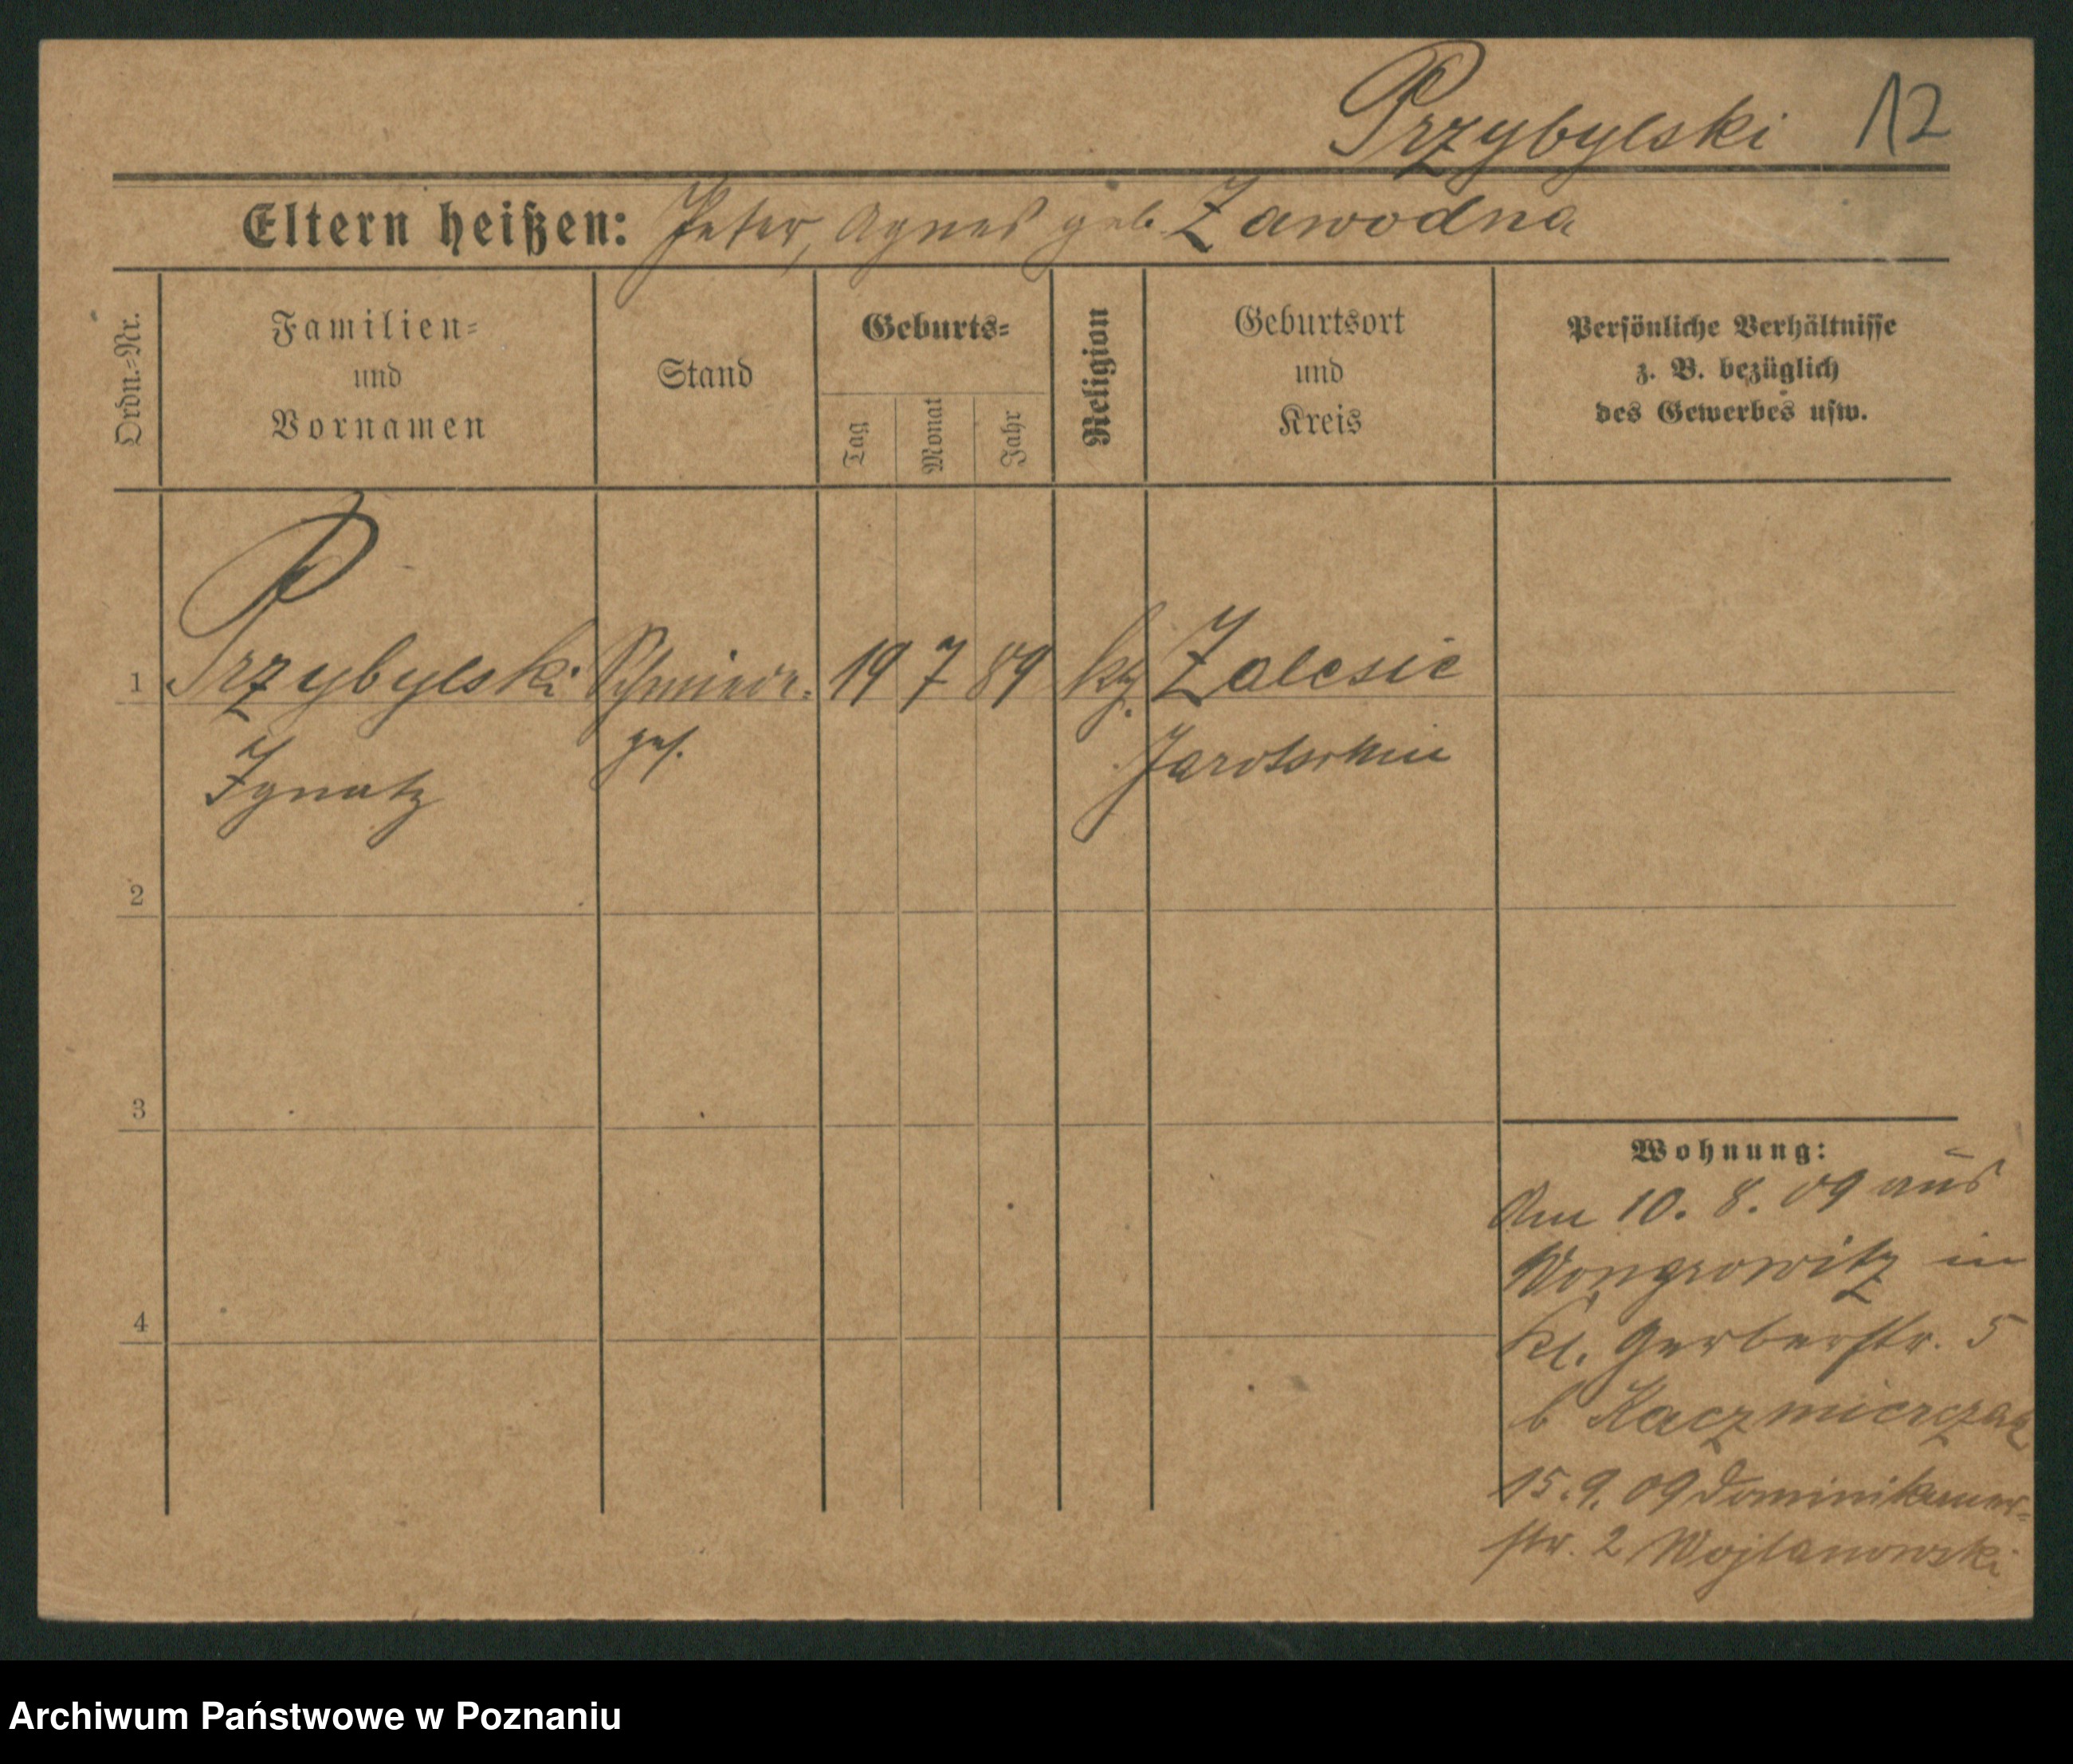 Przybylski 12
Eltern heißen: Peter, Agnes geb. Zawodna
Ordn.-Nr.
Familien-
und
Vornamen
Stand
Geburts-
Tag
Monat
Jahr
Religion
Geburtsort
und
Kreis
Persönliche Verhältnisse
z. B. bezüglich
des Gewerbes usw.
1 Przybylski Schmiede- 19 7 89 kg. Zalesie
Ignatz ges. Jarotschin
2
3
4
Wohnung:
Am 10. 8. 09 aus
Wongrowitz in
Kl. Gerberstr. 5
b Kaczmierczak
15. 9. 09 Dominikaner-
str. 2 Wojtanowski
Archiwum Państwowe w Poznaniu